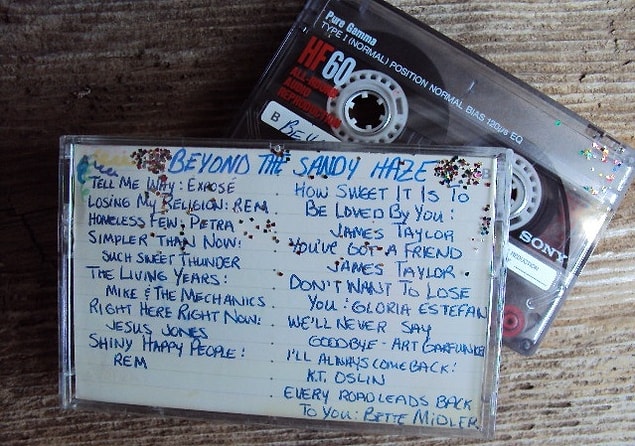 Pure Gamma
TYPE I (NORMAL) POSITION NORMAL BIAS 120µs EQ
HF60
ALL-ROUND
AUDIO
REPRODUCTION
B
SONY
BEYOND THE SANDY HAZE
TELL ME WHY: EXPOSÉ
LOSING MY RELIGION: REM
HOMELESS FEW: PETRA
SIMPLER THAN NOW:
SUCH SWEET THUNDER
THE LIVING YEARS:
MIKE & THE MECHANICS
RIGHT HERE RIGHT NOW:
JESUS JONES
SHINY HAPPY PEOPLE:
REM
HOW SWEET IT IS TO
BE LOVED BY YOU:
JAMES TAYLOR
YOU'VE GOT A FRIEND
JAMES TAYLOR
DON'T WANT TO LOSE
YOU: GLORIA ESTEFAN
WE'LL NEVER SAY
GOODBYE - ART GARFUNKEL
I'LL ALWAYS COME BACK:
K.T. OSLIN
EVERY ROAD LEADS BACK
TO YOU: BETTE MIDLER